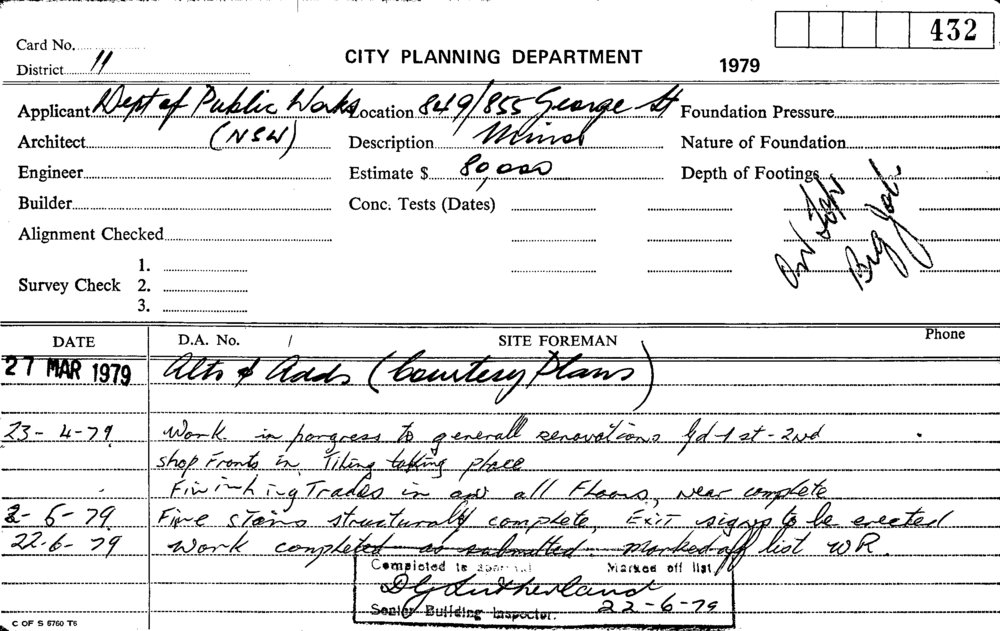 432
Card No.
District 11
CITY PLANNING DEPARTMENT
1979
Applicant Dept of Public Works Location 849/855 George St Foundation Pressure
Architect (NSW) Description Minor Nature of Foundation
Engineer Estimate $ 80,000 Depth of Footings
Builder Conc. Tests (Dates)
Alignment Checked
Big Job.
1.
Survey Check 2.
3.
DATE D.A. No. / SITE FOREMAN Phone
27 MAR 1979 Alts & Adds (Courtesy Plans)
23-4-79 Work in porgress to generall renovations Gd-1st-2nd
shop Fronts in, Tiling taking place
Finishing Trades in on all Floors, near complete
2-6-79 Fire stairs structurally complete, Exit signs to be erected
22-6-79 Work completed as submitted. Marked off list WR.
Completed as approved Marked off list
D G Sutherland
Senior Building Inspector. 22-6-79
C OF S 6760 T6